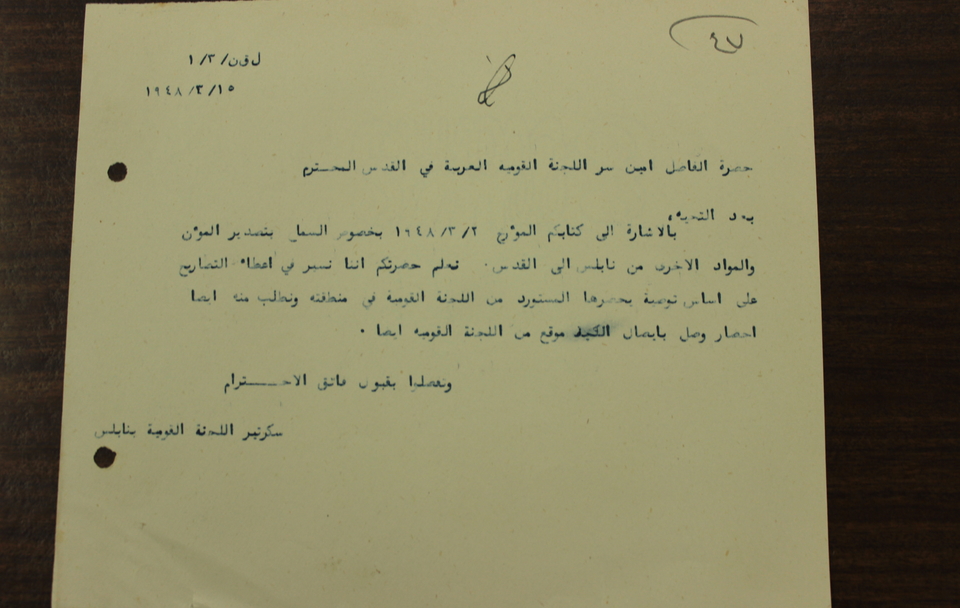 ٤٧
ل ق ن/ ٣/ ١
١٩٤٨/٣/١٥
حضرة الفاضل امين سر اللجنة القومية العربية في القدس المحـترم
بعد التحية،
بالاشارة الى كتابكم المؤرخ ١٩٤٨/٣/٢ بخصوص السماح بتصدير المؤن
والمواد الاخرى من نابلس الى القدس. نعلم حضرتكم اننا نسير في اعطاء التصاريح
على اساس توصية يحضرها المستورد من اللجنة القومية في منطقته ونطلب منه ايضا
احضار وصل بايصال الكمية موقع من اللجنة القومية ايضا .
وتفضلوا بقبول فائق الاحـــــترام
سكرتير اللجنة القومية بنابلس